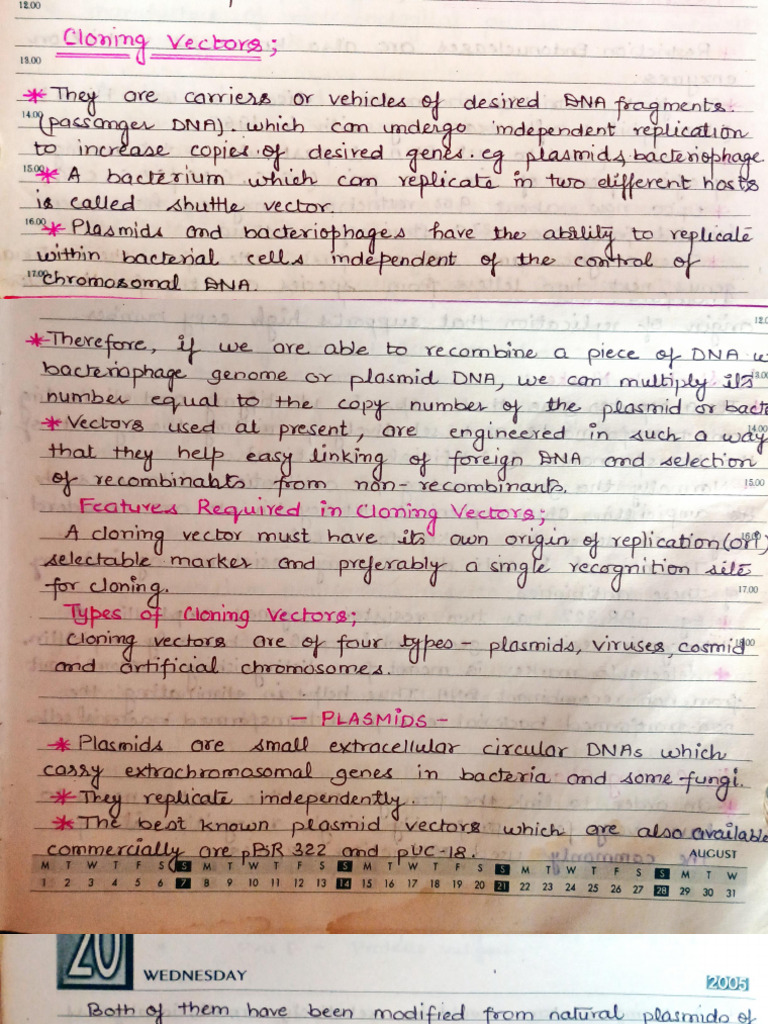 12.00
Cloning Vectors;
13.00
* They are carriers or vehicles of desired DNA fragments.
14.00
(passanger DNA). which can undergo independent replication
to increase copies of desired genes. eg plasmids, bacteriophage
15.00
* A bacterium which can replicate in two different hosts
is called shuttle vector.
16.00
* Plasmids and bacteriophages have the ability to replicate
within bacterial cells independent of the control of
17.00
chromosomal DNA.
12.0
* Therefore, if we are able to recombine a piece of DNA w
13.00
bacteriophage genome or plasmid DNA, we can multiply its
number equal to the copy number of the plasmid or bacte
14.00
* Vectors used at present, are engineered in such a way
that they help easy linking of foreign DNA and selection
of recombinants from non-recombinants.
15.00
Features Required in Cloning Vectors;
A cloning vector must have its own origin of replication (ori)
selectable marker and preferably a single recognition site
17.00
for cloning.
Types of Cloning Vectors;
Cloning vectors are of four types - plasmids, viruses, cosmid
and artificial chromosomes.
- PLASMIDS -
* Plasmids are small extracellular circular DNAs which
carry extrachromosomal genes in bacteria and some fungi.
* They replicate independently.
* The best known plasmid vectors which are also available
commercially are pBR 322 and pUC-18.
AUGUST
M T W T F S S M T W T F S S M T W T F S S M T W T F S S M T W
1 2 3 4 5 6 7 8 9 10 11 12 13 14 15 16 17 18 19 20 21 22 23 24 25 26 27 28 29 30 31
20 WEDNESDAY 2005
Both of them have been modified from natural plasmids of